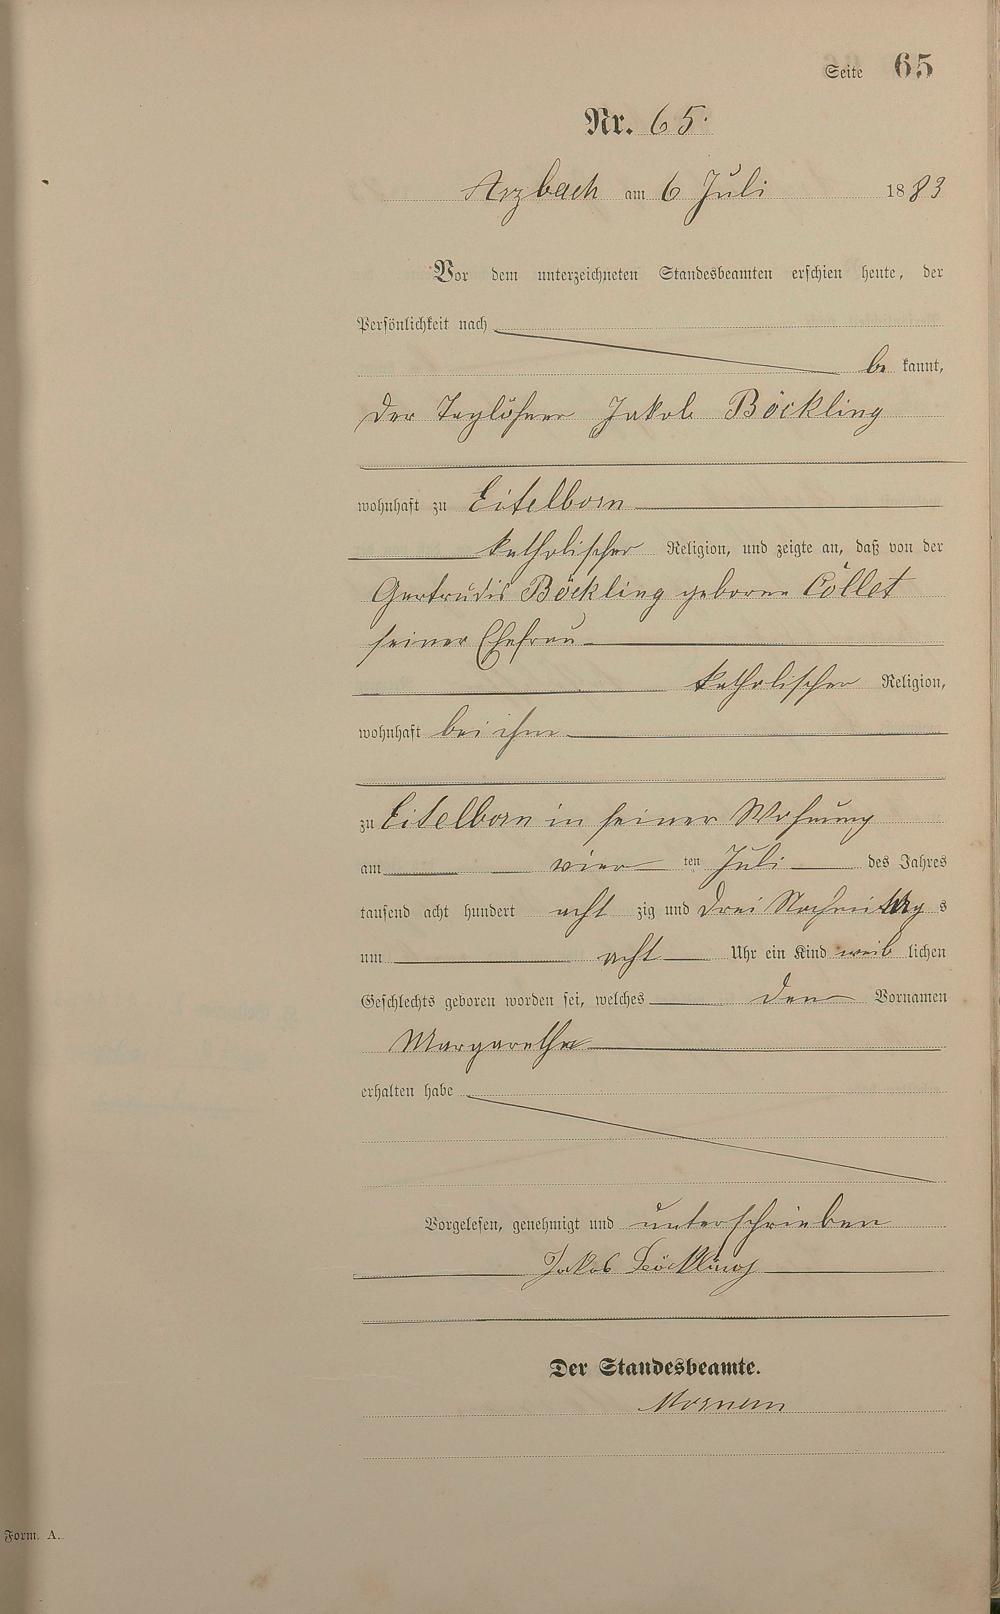 Seite 65
Nr. 65.
Arzbach am 6 Juli 1883
Vor dem unterzeichneten Standesbeamten erschien heute, der
Persönlichkeit nach
be kannt,
der Taglöhner Jakob Böckling
wohnhaft zu Eitelborn
katholischer Religion, und zeigte an, daß von der
Gertrudis Böckling geborne Collet
seiner Ehefrau
katholischer Religion,
wohnhaft bei ihm
zu Eitelborn in seiner Wohnung
am vier ten Juli des Jahres
tausend acht hundert acht zig und drei Nachmittag s
um acht Uhr ein Kind weib lichen
Geschlechts geboren worden sei, welches den Vornamen
Margarethe
erhalten habe
Vorgelesen, genehmigt und unterschrieben
Jakob Böckling
Der Standesbeamte.
Form. A.